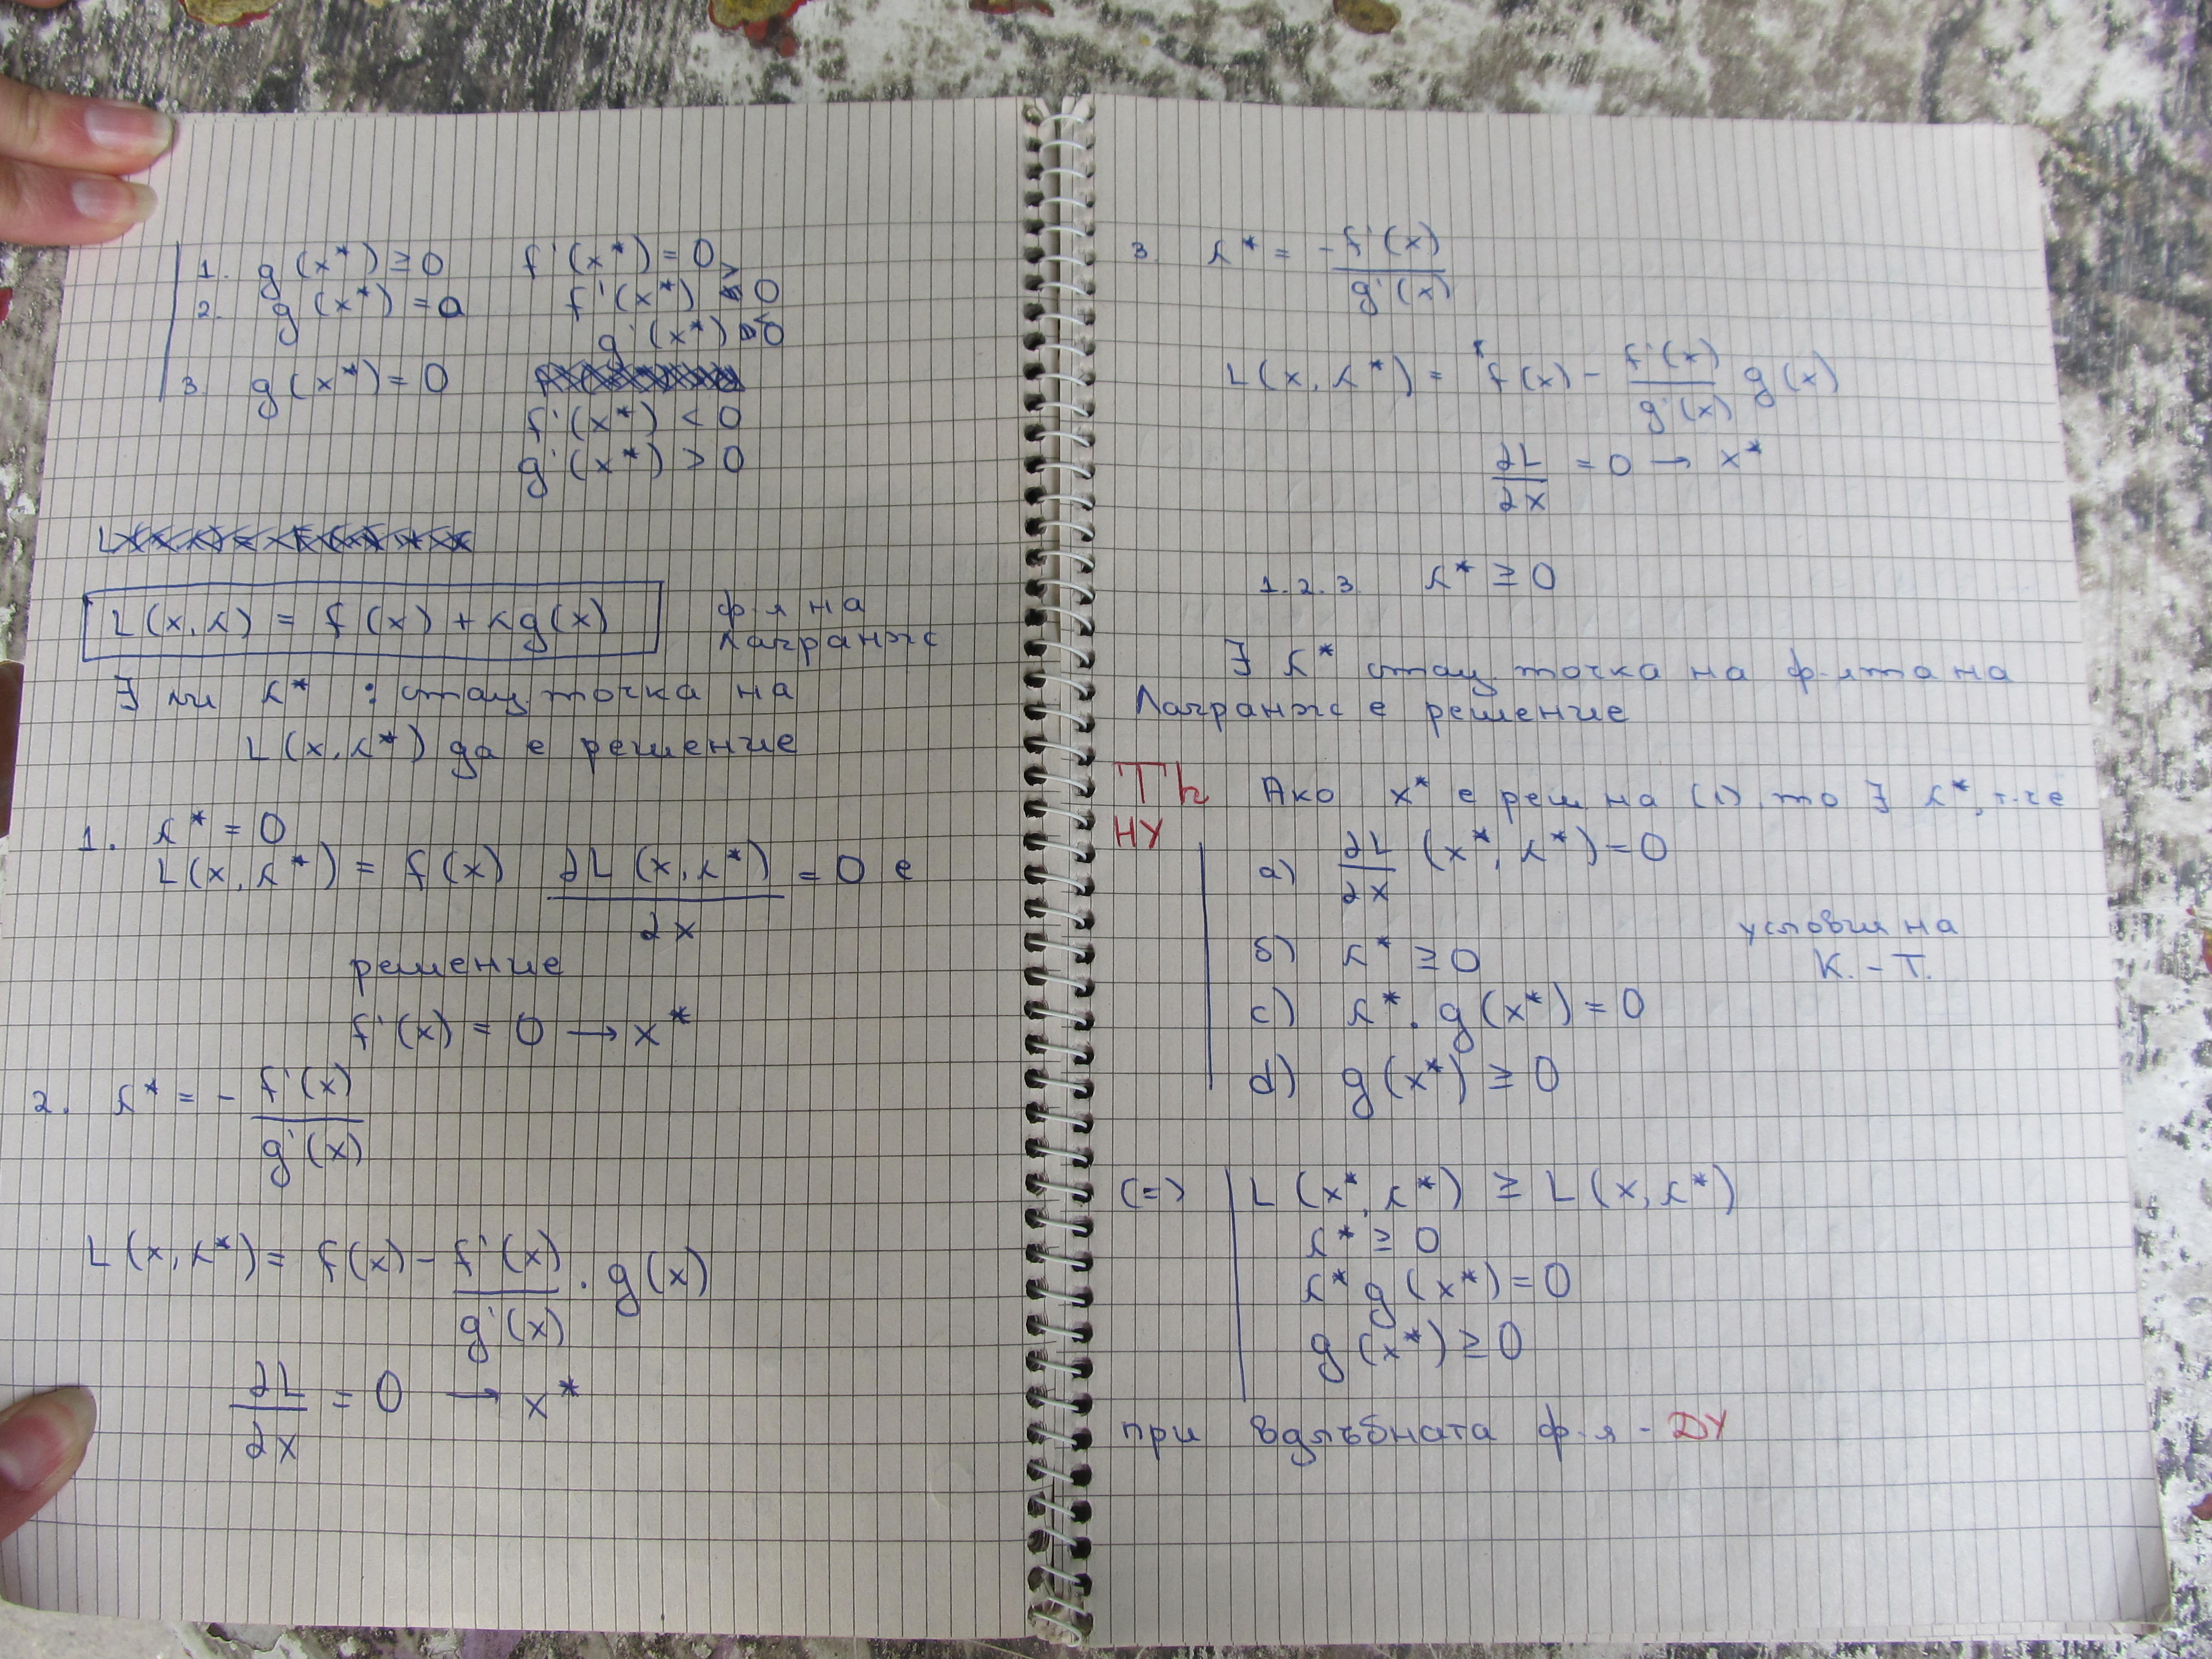 1. g(x*) ≥ 0 f'(x*) = 0
2. g(x*) = 0 f'(x*) > 0
g'(x*) < 0
3. g(x*) = 0
f'(x*) < 0
g'(x*) > 0
L(x, λ) = f(x) + λg(x) ф-я на
Лагранж
∃ ли λ* : стац. точка на
L(x, λ*) да е решение
1. λ* = 0
L(x, λ*) = f(x) ∂L(x, λ*)/∂x = 0 е
решение
f'(x) = 0 → x*
2. λ* = - f'(x)/g'(x)
L(x, λ*) = f(x) - f'(x)/g'(x) . g(x)
∂L/∂x = 0 → x*
3. λ* = -f'(x)/g'(x)
L(x, λ*) = f(x) - f'(x)/g'(x) g(x)
∂L/∂x = 0 → x*
1. 2. 3. λ* ≥ 0
∃ λ* стац. точка на ф-ята на
Лагранж е решение
Th Ако x* е реш на (1), то ∃ λ*, т.че
НУ
а) ∂L/∂x (x*, λ*) = 0
условия на
б) λ* ≥ 0
К. - Т.
c) λ* . g(x*) = 0
d) g(x*) ≥ 0
(=) L(x*, λ*) ≥ L(x, λ*)
λ* ≥ 0
λ* g(x*) = 0
g(x*) ≥ 0
при вдлъбната ф-я - ДУ